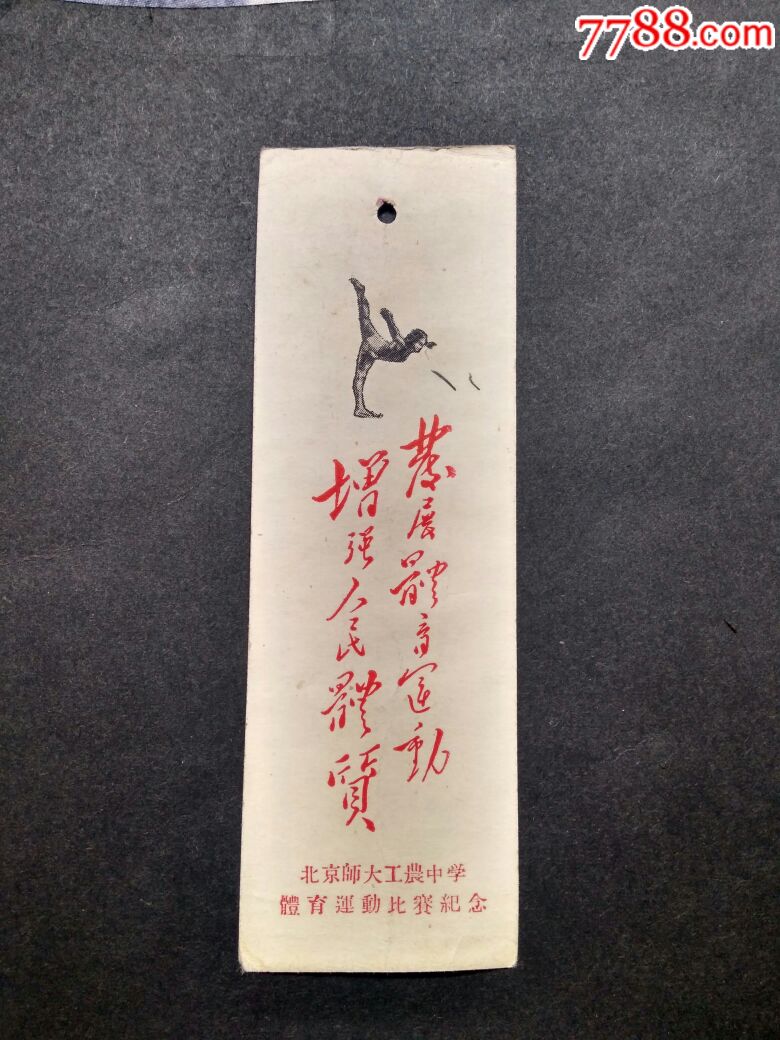 7788.com
發展體育运動
增强人民體質
北京師大工農中学
體育運動比賽紀念